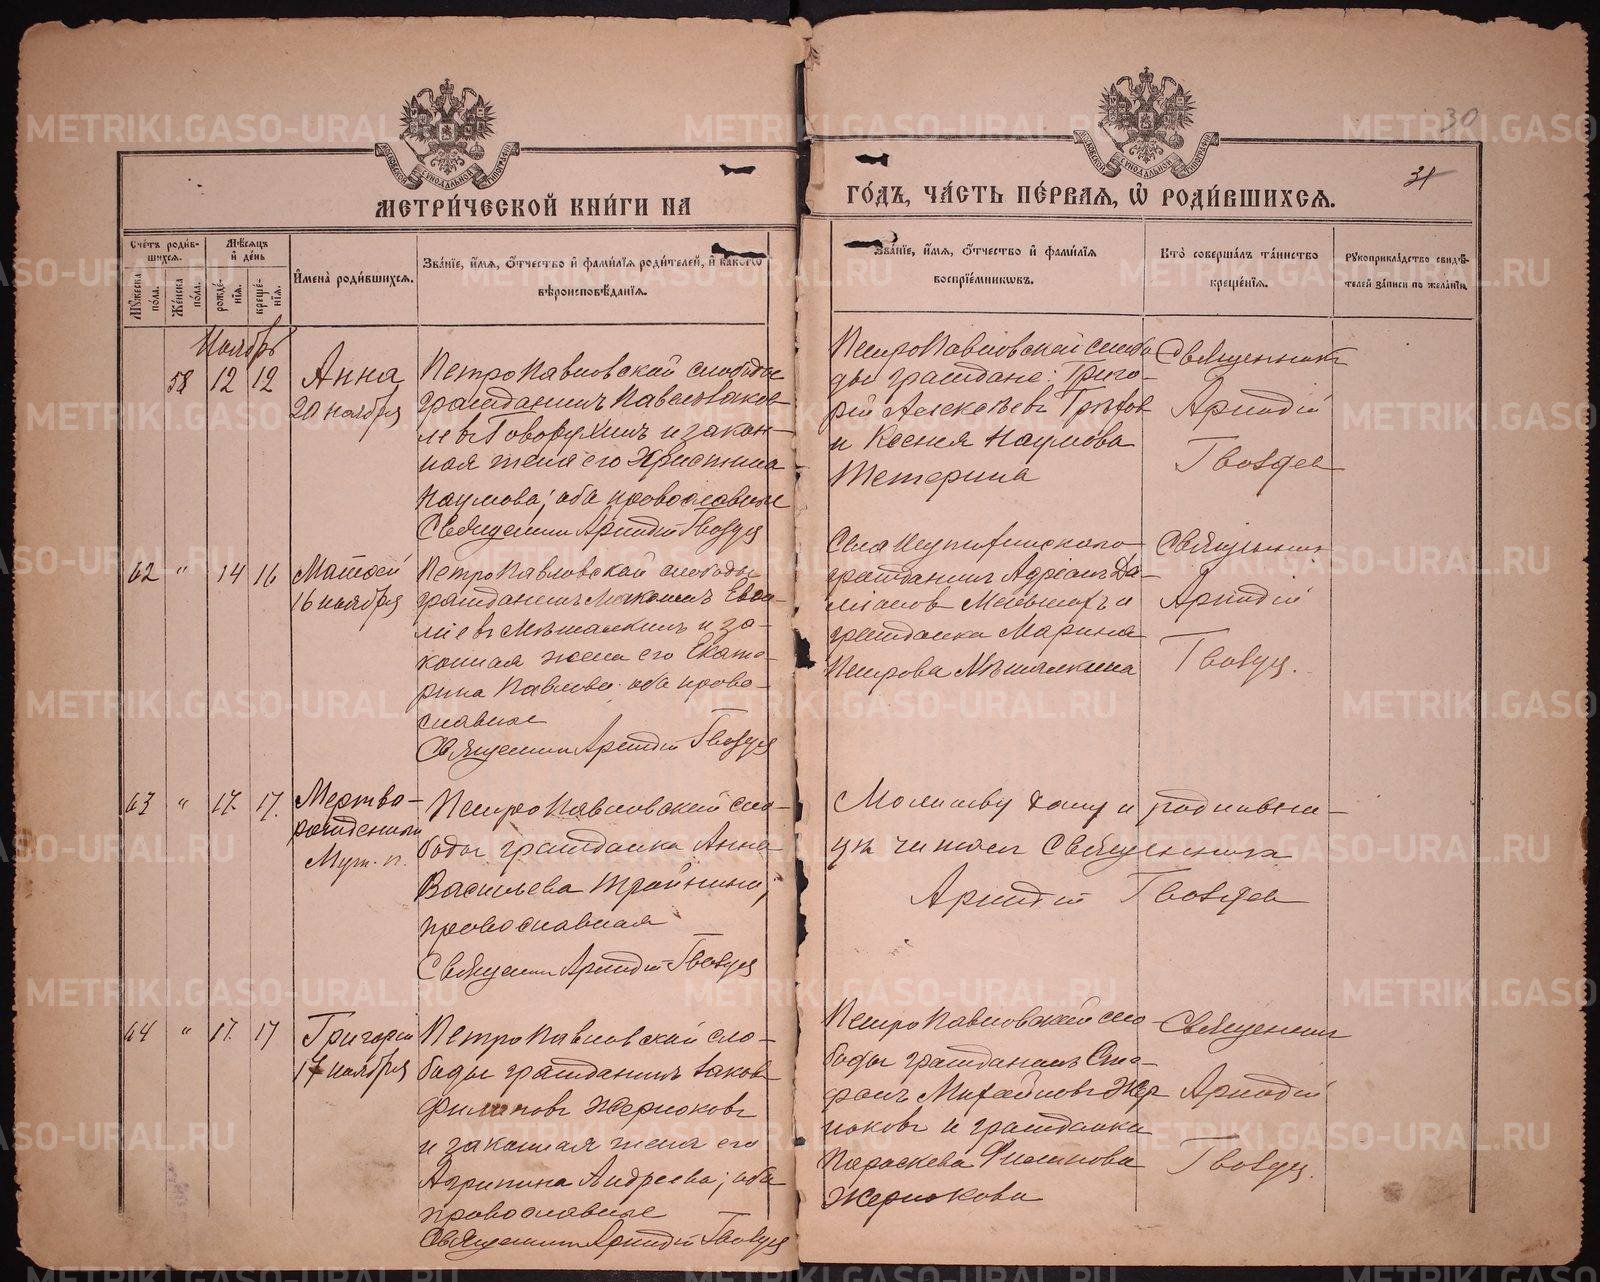 30
31
МЕТРИ́ЧЕСКОЙ КНИ́ГИ НА
ГО́ДЪ, ЧА́СТЬ ПЕ́РВАЯ, Ѡ҆ РОДИ́ВШИХСЯ.
Сче́тъ роди́в-
шихся.
Мѣ́сяцъ
и҆ де́нь
Мꙋ́жеска по́ла.
Же́нска по́ла.
рожде́-нїя.
креще́-нїя.
И҆мена̀ роди́вшихся.
Зва́нїе, и҆́мя, ѻ҆́тчество и҆ фами́лїя роди́телей, и҆ како́гѡ
вѣроисповѣ́данїя.
Зва́нїе, и҆́мя, ѻ҆́тчество и҆ фами́лїя
воспрїе́мникѡвъ.
Кто̀ соверша́лъ та́инство
креще́нїя.
Рꙋкоприкла́дство свидѣ́-
телей за́писи по жела́нїю.
Ноябрь
58 12 12
Анна
20 ноября
ПетроПавловской слободы
гражданинъ Павелъ Яков-
левъ Говорухинъ и закон-
ная жена его Христина
Наумова; оба провославные
Священник Аркадій Гвоздев
ПетроПавловской слобо
ды граждане: Григо-
рій Алексѣевъ
и Ксенія Наумова
Тетерина
Священник
Аркадій
Гвоздев
62 " 14 16
Матѳей
16 ноября
ПетроПавловской слободы
гражданинъ
и за-
конная жена его Екате-
рина Павлова оба прово-
славные
Священник Аркадій Гвоздев
Села
гражданин Адріанъ Да-
и
гражданка Марина
Петрова Мѣшалкина
Священник
Аркадій
Гвоздев.
63 " 17. 17.
Мертво-
рожденный
Муж. п.
ПетроПавловской сло-
боды гражданка Анна
Васильева
провославная
Священник Аркадій Гвоздев
Молитву дому и
читал Священник
Аркадій Гвоздев
64 " 17. 17
Григорій
17 ноября
ПетроПавловской сло-
боды гражданинъ Яковъ
Филиповъ Жерноковъ
и законная жена его
Агрипина Андреева; оба
провославные
Священник Аркадій Гвоздев
ПетроПавловской сло-
боды гражданинъ Сте-
фанъ Михайловъ Жер
ноковъ и гражданка
Параскева Филипова
Жернокова
Священник
Аркадій
Гвоздев.
METRIKI.GASO-URAL.RU